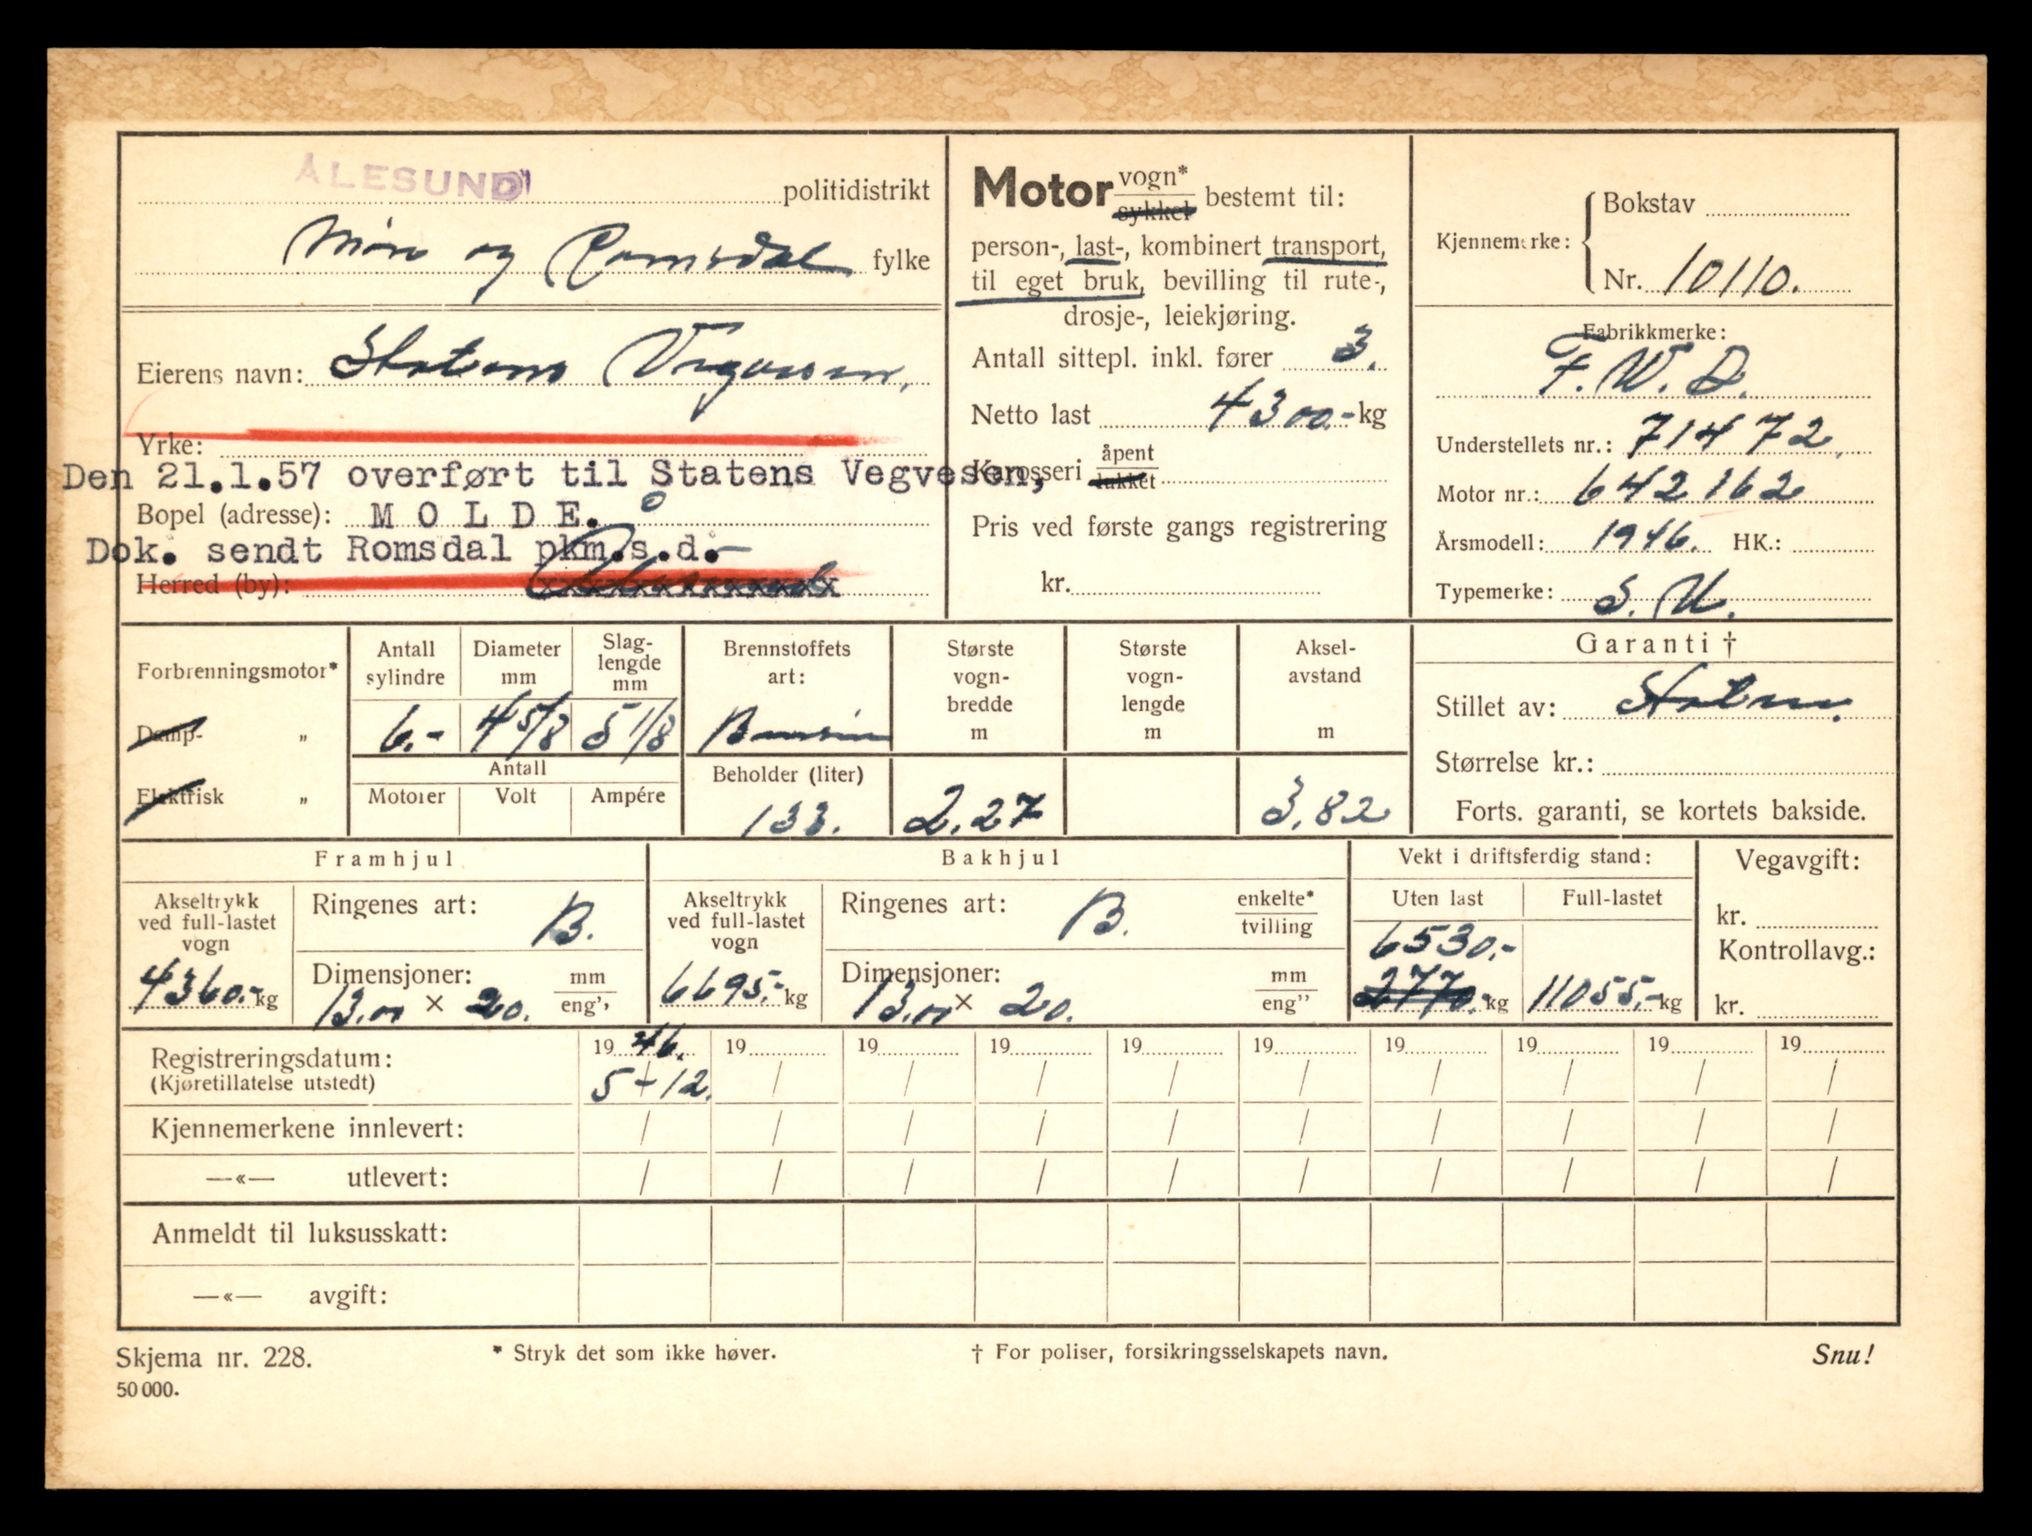 ÅLESUND politidistrikt
Møre og Romsdal fylke
Eierens navn: Statens Vegvesen.
Yrke:
Den 21.1.57 overført til Statens Vegvesen,
Bopel (adresse): M O L D E.
Dok. sendt Romsdal pkm.s.d.-
Herred (by):
Motor vogn* sykkel bestemt til:
person-, last-, kombinert transport,
til eget bruk, bevilling til rute-,
drosje-, leiekjøring.
Antall sittepl. inkl. fører 3.
Netto last 4300.- kg
Karosseri åpent lukket
Pris ved første gangs registrering
kr.
Kjennemerke: Bokstav
Nr. 10110.
Fabrikkmerke:
F. W. D.
Understellets nr.: 71472.
Motor nr.: 642162
Årsmodell: 1946. HK.:
Typemerke: S. U.
Forbrenningsmotor*
Damp- „
Elektrisk „
Antall sylindre
6.-
Diameter mm
4 5/8
Slag-lengde mm
5 1/8
Antall
Motorer Volt Ampére
Brennstoffets art:
Bensin
Beholder (liter)
133.
Største vogn-bredde m
2.27
Største vogn-lengde m
Aksel-avstand m
3.82
Garanti †
Stillet av: Staten.
Størrelse kr.:
Forts. garanti, se kortets bakside.
Framhjul
Akseltrykk ved full-lastet vogn
4360.- kg
Ringenes art: B.
Dimensjoner: mm
13.00 × 20. eng''
Bakhjul
Akseltrykk ved full-lastet vogn
6695.- kg
Ringenes art: B. enkelte* tvilling
Dimensjoner: mm
13.00 × 20. eng''
Vekt i driftsferdig stand:
Uten last Full-lastet
6530.-
2770.- kg 11055.- kg
Vegavgift:
kr.
Kontrollavg.:
kr.
Registreringsdatum: 1946. 19 19 19 19 19 19 19 19 19
(Kjøretillatelse utstedt) 5-12. / / / / / / / / /
Kjennemerkene innlevert: / / / / / / / / / /
—«— utlevert: / / / / / / / / / /
Anmeldt til luksusskatt:
—«— avgift:
Skjema nr. 228. * Stryk det som ikke høver. † For poliser, forsikringsselskapets navn. Snu!
50 000.